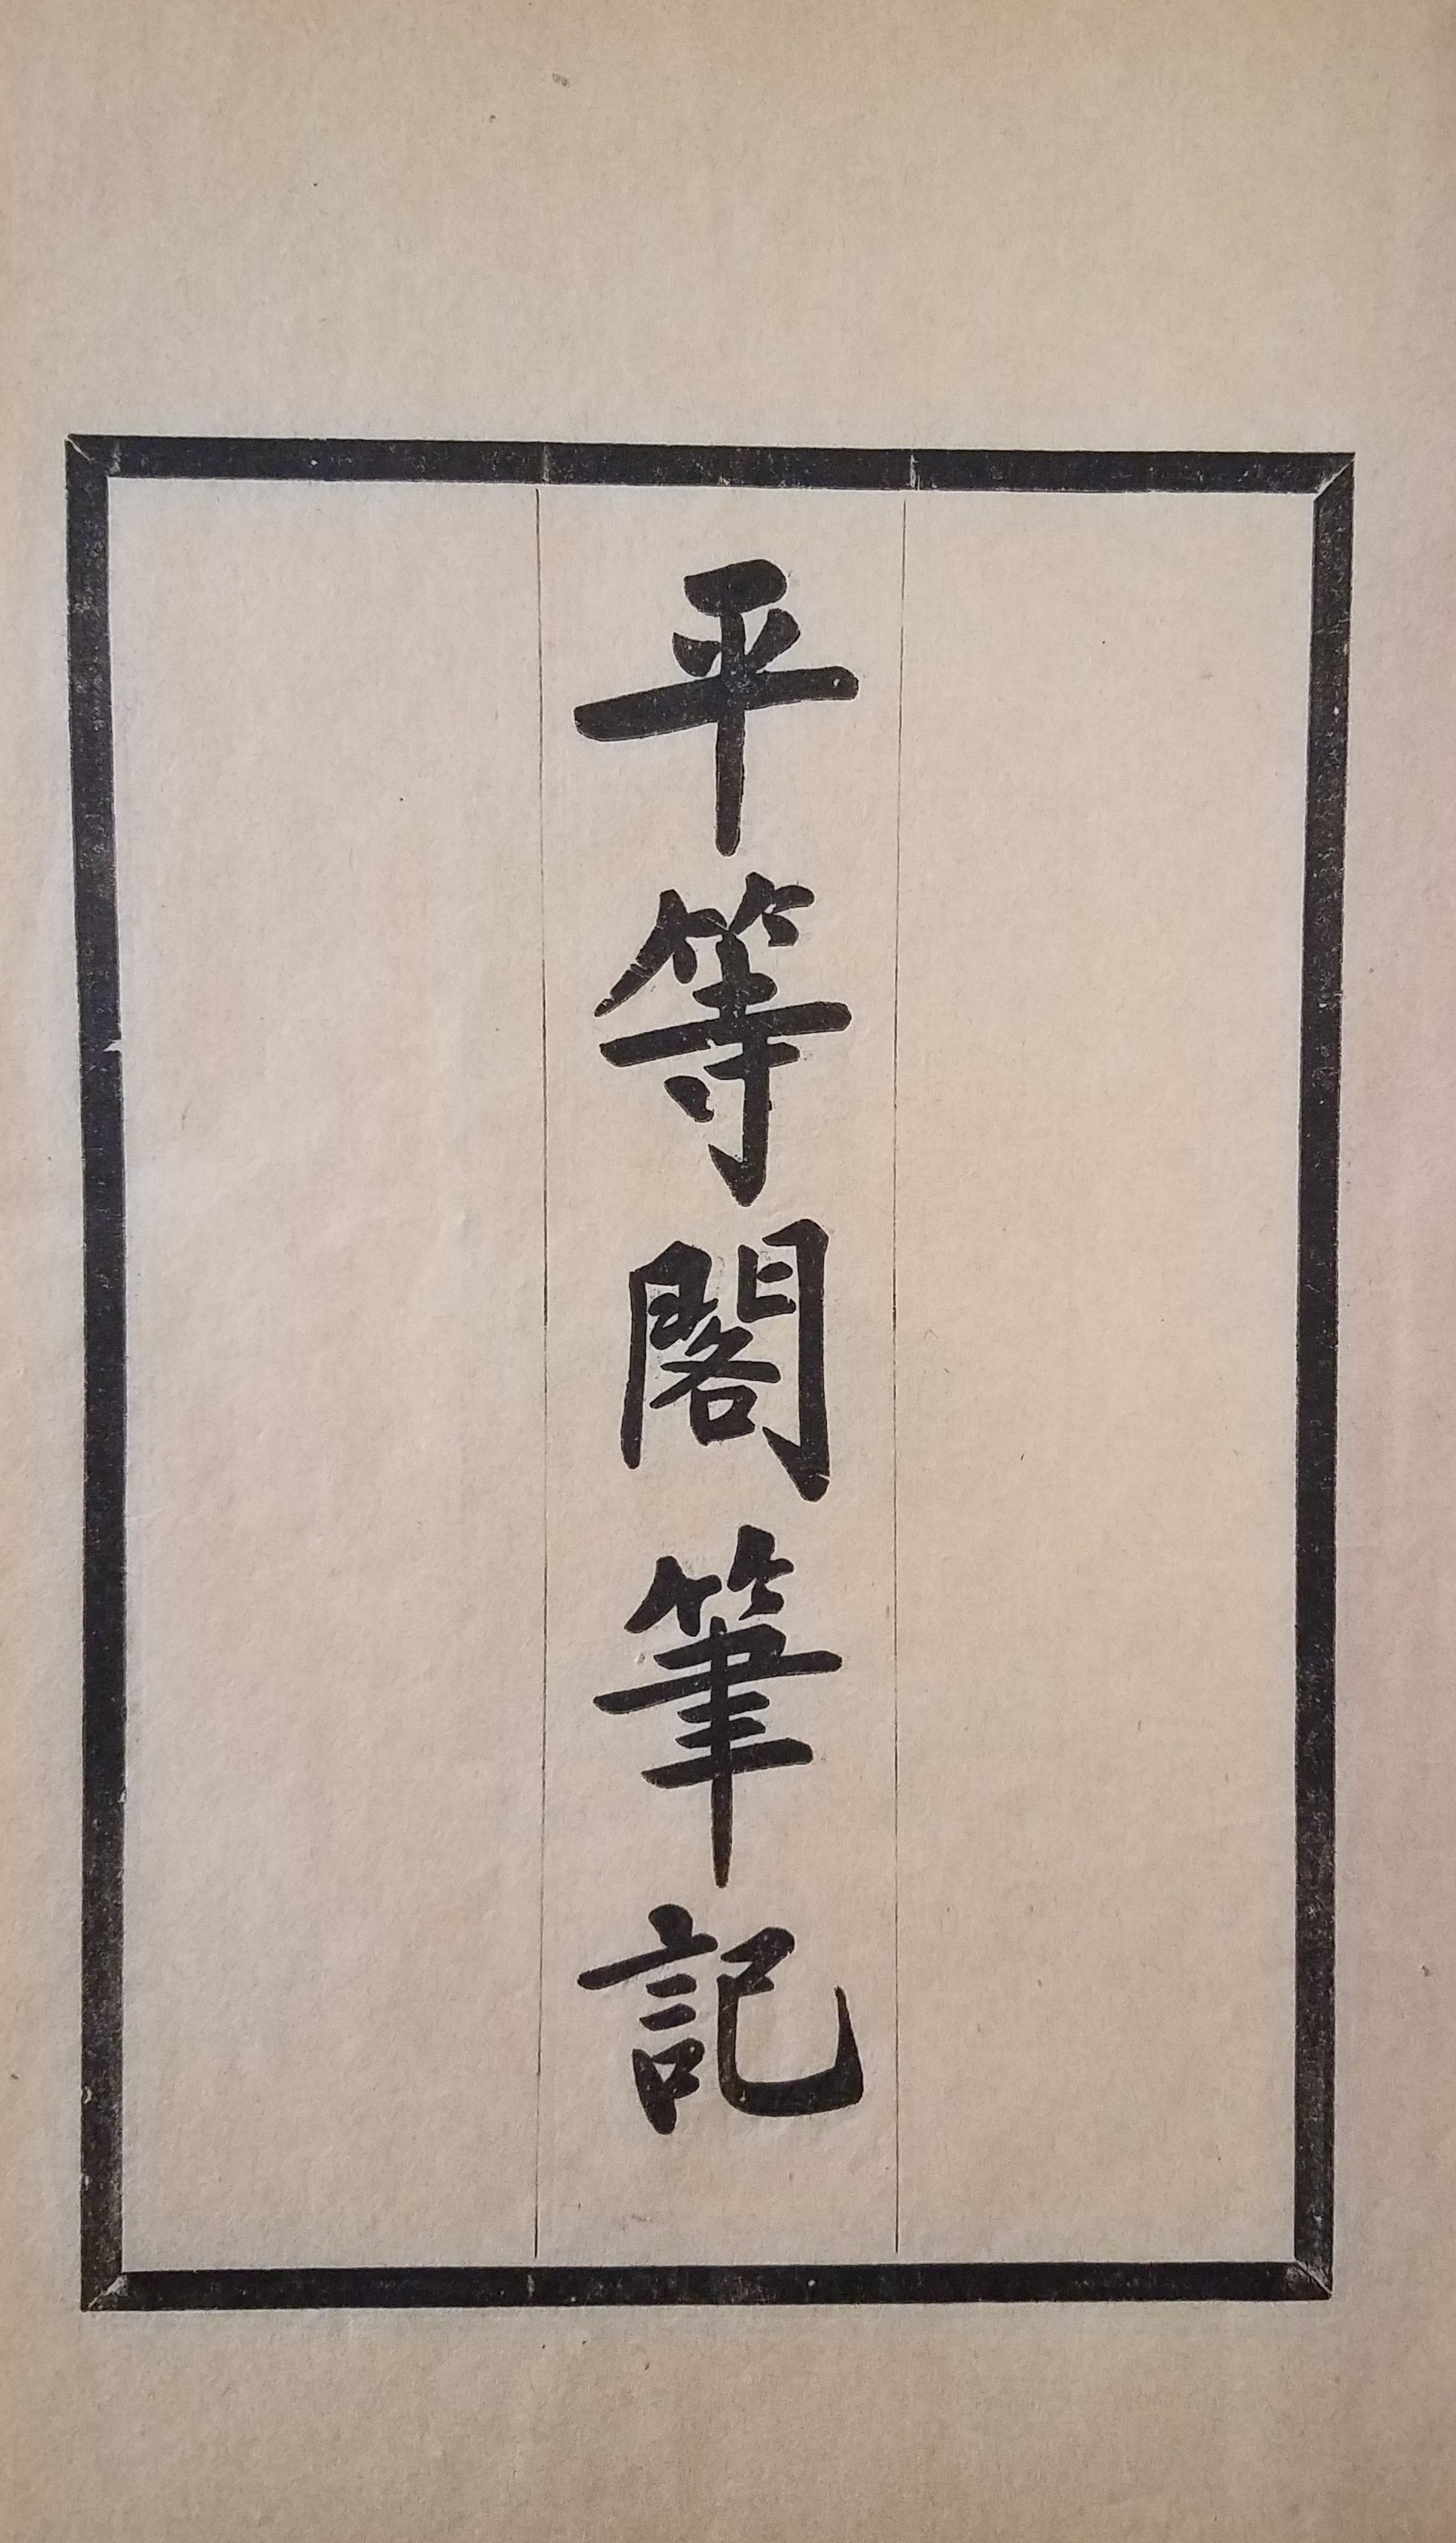 平等閣筆記